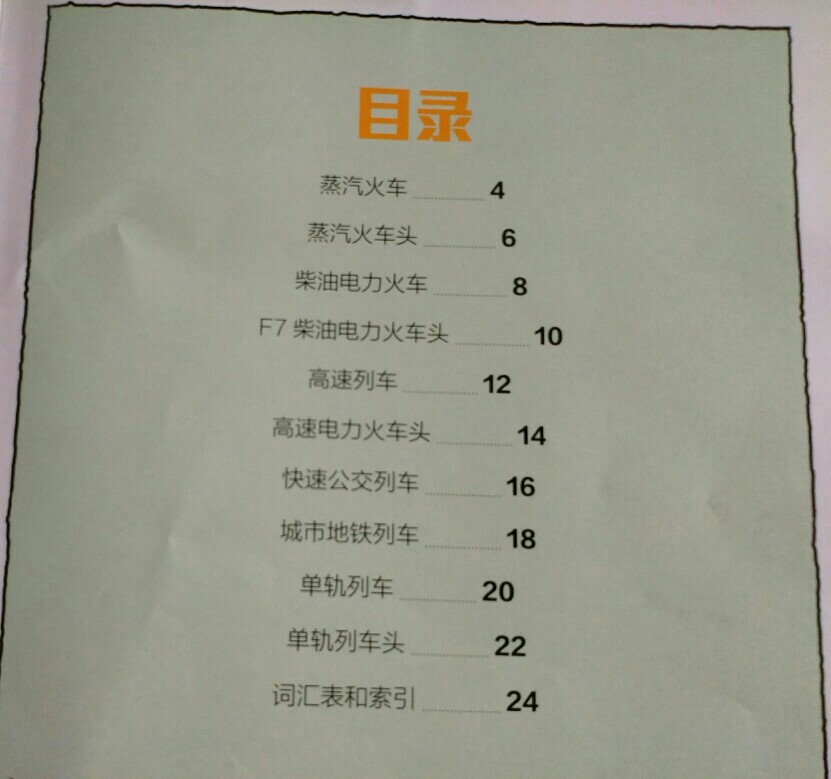 目录
蒸汽火车 4
蒸汽火车头 6
柴油电力火车 8
F7 柴油电力火车头 10
高速列车 12
高速电力火车头 14
快速公交列车 16
城市地铁列车 18
单轨列车 20
单轨列车头 22
词汇表和索引 24